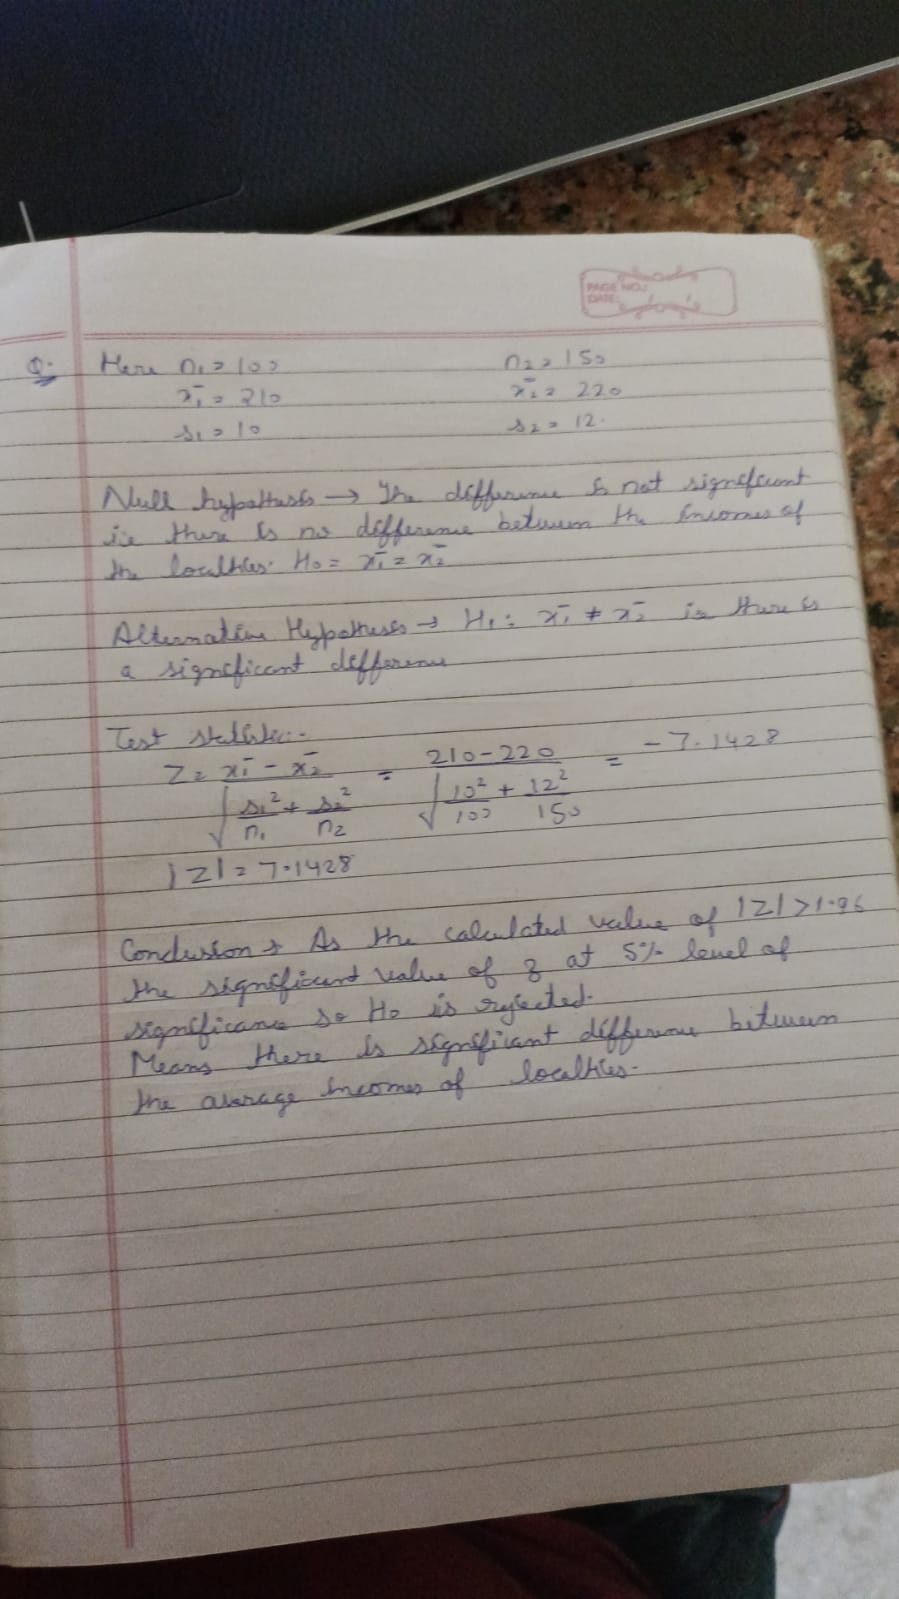 PAGE NO.:
DATE:
Q. Here n₁ = 100 n₂ = 150
x̄₁ = 210 x̄₂ = 220
s₁ = 10 s₂ = 12.
Null hypothesis → The difference is not significant
i.e there is no difference between the incomes of
the localties. H₀ = x̄₁ = x̄₂
Alternative Hypothesis → H₁: x̄₁ ≠ x̄₂ ie there is
a significant difference
Test statistic:-
Z = (x̄₁ - x̄₂) / √(s₁²/n₁ + s₂²/n₂) = (210-220) / √(10²/100 + 12²/150) = -7.1428
|Z| = 7.1428
Conclusion → As the calculated value of |Z| > 1.96
the significant value of z at 5% level of
significance so H₀ is rejected.
Means there is significant difference between
the average incomes of localties.